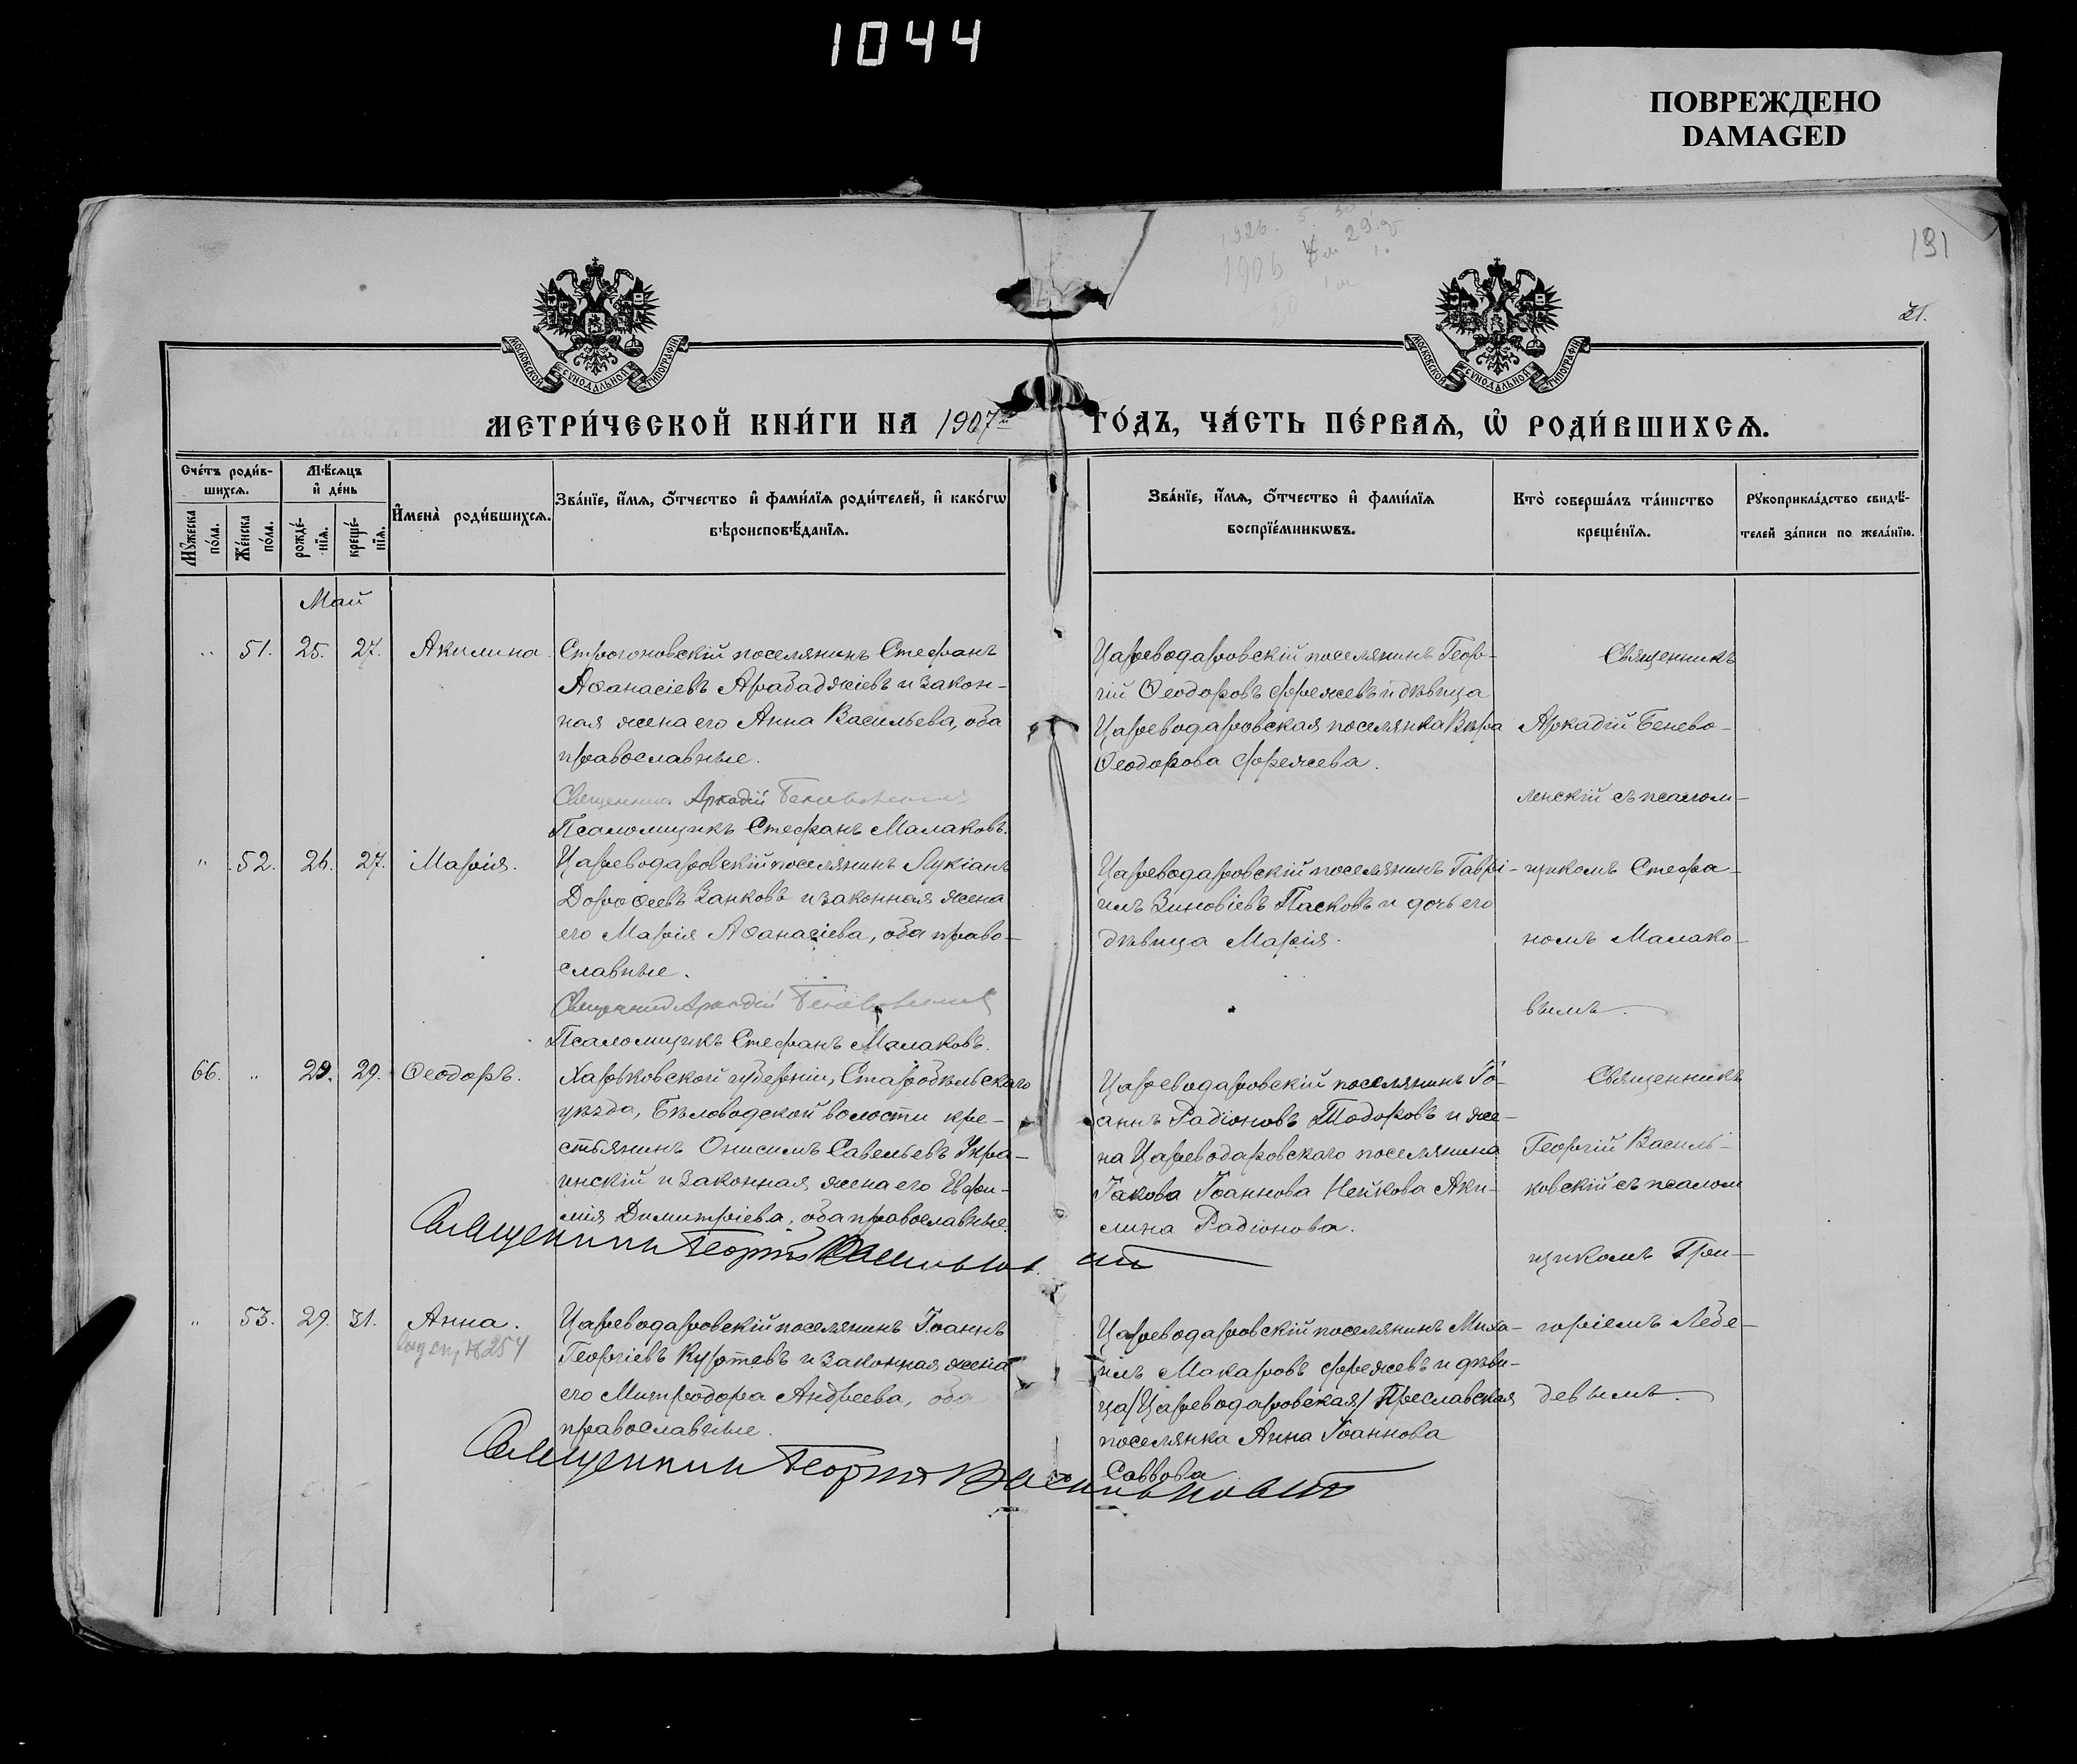 1044
ПОВРЕЖДЕНО
DAMAGED
191
31.
МОСКОВСКОЙ СУНОДАЛЬНОЙ ТИПОГРАФІИ
МОСКОВСКОЙ СУНОДАЛЬНОЙ ТИПОГРАФІИ
МЕТРИ́ЧЕСКОЙ КНИ́ГИ НА 1907й ГО́ДЪ, ЧА́СТЬ ПЕ́РВАѦ, Ѡ҆ РОДИ́ВШИХСѦ.
Сче́тъ роди́в-
шихсѧ.
Мѣ́сѧцъ
и҆ де́нь
Мꙋ́жеска по́ла.
Же́нска по́ла.
рожде́-
нїѧ.
креще́-
нїѧ.
И҆мена̀ роди́вшихсѧ.
Зва́нїе, и҆́мѧ, ѻ҆́тчество и҆ фами́лїѧ роди́телей, и҆ како́гѡ
вѣроисповѣ́данїѧ.
Зва́нїе, и҆́мѧ, ѻ҆́тчество и҆ фами́лїѧ
воспрїе́мникѡвъ.
Кто̀ соверша́лъ та́инство
креще́нїѧ.
Рꙋкоприкла́дство свидѣ́-
телей за́писи по жела́нїю.
Май
" 51. 25. 27. Акилина.
Строгоновскій поселянинъ Стефанъ
Аѳанасіевъ Арабаджіевъ и закон-
ная жена его Анна Васильева, оба
православные.
Священникъ Аркадій Беневоленскій
Псаломщикъ Стефанъ Малаковъ.
Цареводаровскій поселянинъ Геор-
гій Ѳеодоровъ Фрежевъ и дѣвица
Цареводаровская поселянка Вѣра
Ѳеодорова Фрежева.
Священникъ
Аркадій Бенево-
ленскій съ псалом-
" 52. 26. 27. Марія.
Цареводаровскій поселянинъ Лукіанъ
Дороѳеевъ Занковъ и законная жена
его Марія Аѳанасіева, оба право-
славные.
Священникъ Аркадій Беневоленскій
Псаломщикъ Стефанъ Малаковъ.
Цареводаровскій поселянинъ Гаврі-
илъ Зиновіевъ Пасковъ и дочь его
дѣвица Марія.
щикомъ Стефа-
номъ Малако-
вымъ.
66. " 29. 29. Ѳеодоръ.
Харьковской губерніи, Старобѣльскаго
уѣзда, Бѣловодской волости кре-
стьянинъ Онисимъ Савельевъ Укра-
инскій и законная жена его Евфи-
мія Димитріева, оба православные.
Священникъ Георгій Васильковскій
Цареводаровскій поселянинъ Іо-
аннъ Радіоновъ Тодоровъ и же-
на Цареводаровскаго поселянина
Іакова Іоаннова Нейкова Аки-
лина Радіонова.
Священникъ
Георгій Василь-
ковскій съ псалом
щикомъ Гри-
" 53. 29. 31. Анна.
№254
Цареводаровскій поселянинъ Іоаннъ
Георгіевъ Куртевъ и законная жена
его Митродора Андреева, оба
православные.
Священникъ Георгій Васильковскій
Цареводаровскій поселянинъ Миха-
илъ Макаровъ Фрежевъ и дѣви-
ца/Цареводаровская/ Преславская
поселянка Анна Іоаннова
Саввова
горіемъ Лебе-
девымъ.